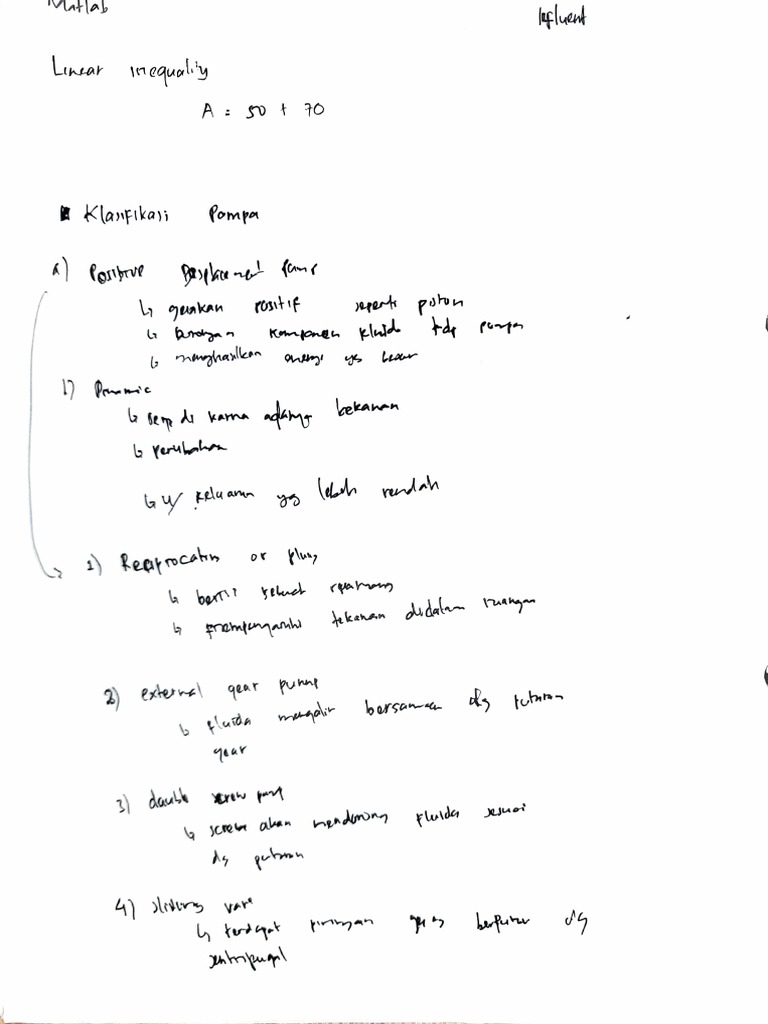 Matlab
Influent
Linear inequality
A = 50 + 70
Klasifikasi Pompa
a) Positive Displacement Pump
↳ gerakan positif seperti piston
↳ komponen fluida thdp pompa
↳ menghasilkan energi yg besar
↳ karna adanya tekanan
↳ perubahan
↳ u/ keluaran yg lebih rendah
1) Reciprocating or
↳
↳ mempengaruhi tekanan didalam ruangan
2) external gear pump
↳ fluida mengalir bersamaan dg putaran
gear
3) double screw pump
↳ screw akan mendorong fluida sesuai
dg putaran
4) sliding vane
↳ terdapat piringan yang berputar dg
sentrifugal